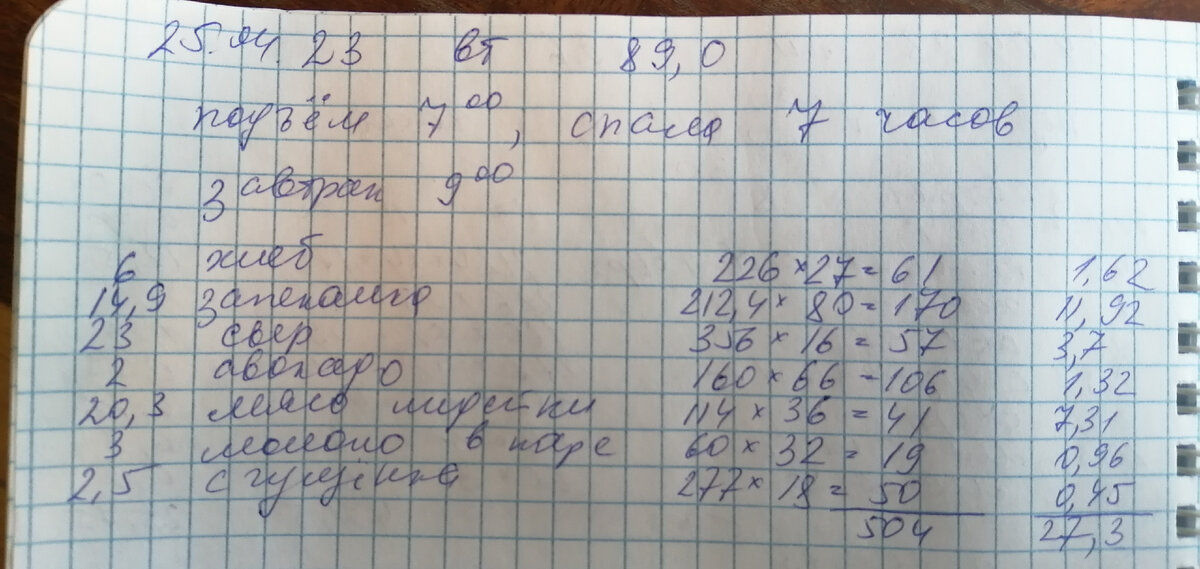 25.04.23 вт 89,0
подъём 7⁰⁰, спала 7 часов
завтрак 9⁰⁰
6 хлеб 226×27=61 1,62
14,9 запеканка 212,4×80=170 11,92
23 сыр 356×16=57 3,7
2 авокадо 160×66=106 1,32
20,3 мясо индейки 114×36=41 7,31
3 молоко в кофе 60×32=19 0,96
2,5 сгущёнка 277×18=50 0,45
504 27,3